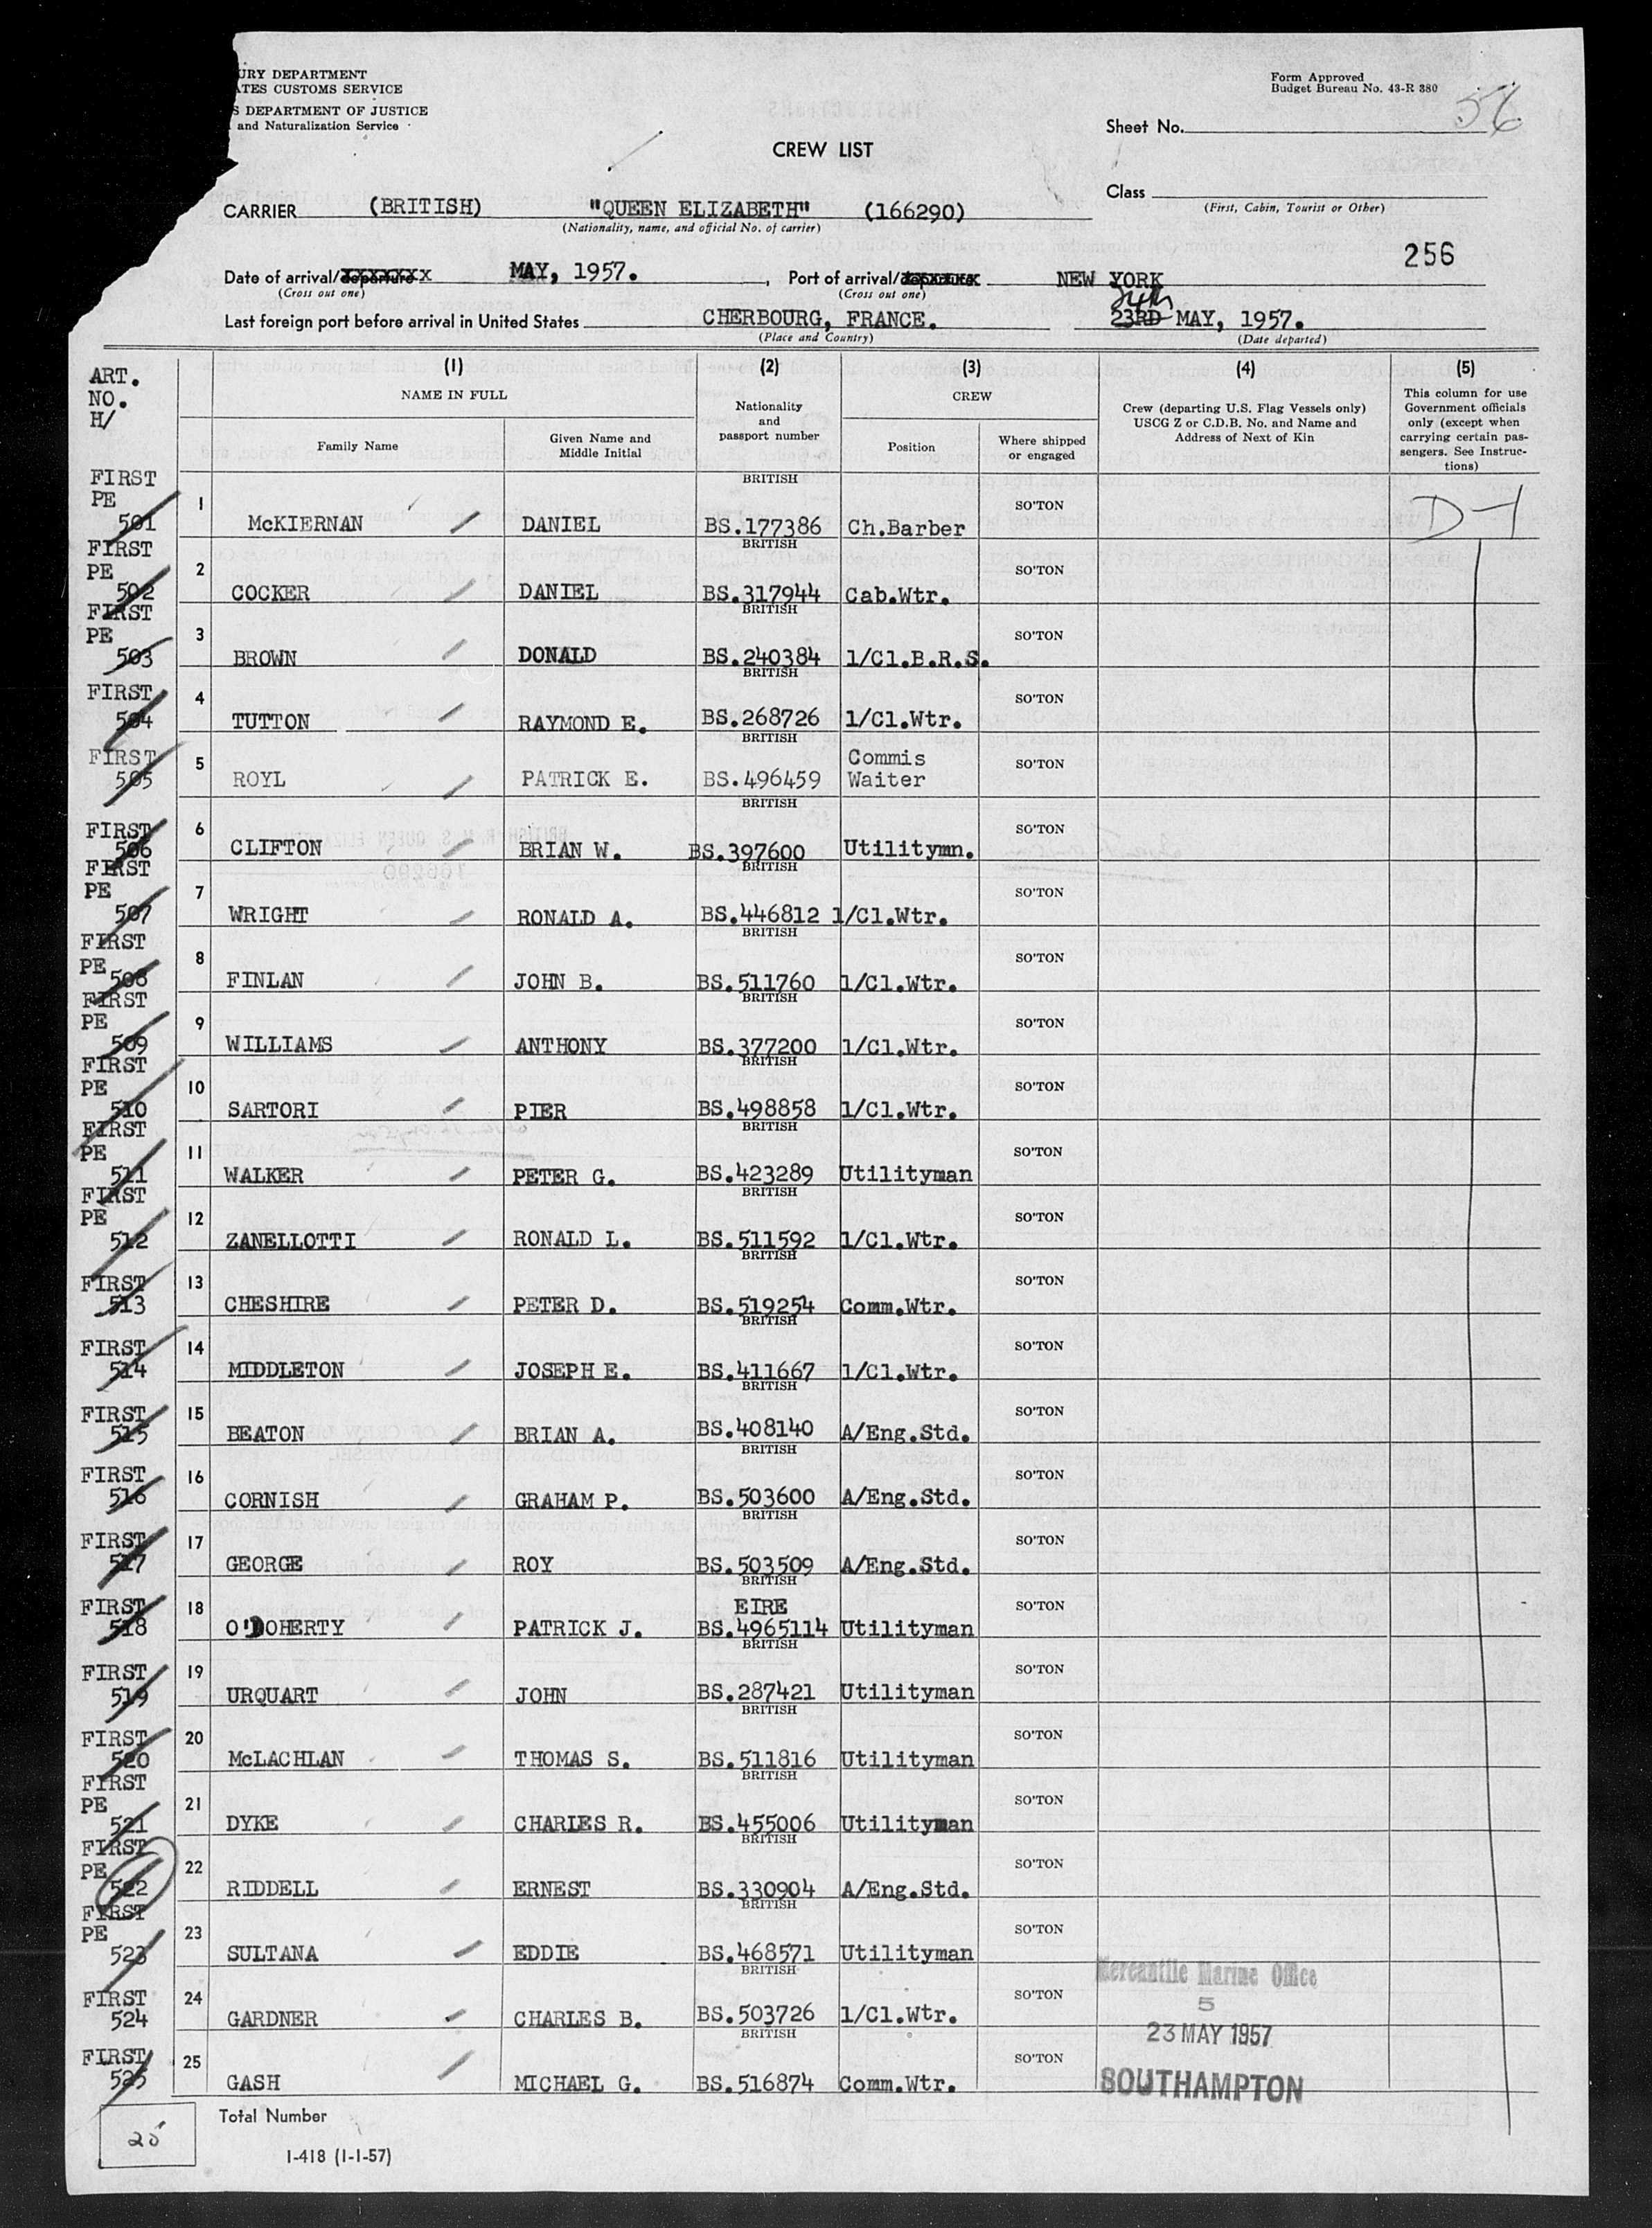 URY DEPARTMENT
ATES CUSTOMS SERVICE
S DEPARTMENT OF JUSTICE
and Naturalization Service
Form Approved
Budget Bureau No. 43-R 380
Sheet No. 56
CREW LIST
Class
(First, Cabin, Tourist or Other)
CARRIER (BRITISH) "QUEEN ELIZABETH" (166290)
(Nationality, name, and official No. of carrier)
256
Date of arrival/departure MAY, 1957. , Port of arrival/departure NEW YORK
(Cross out one) (Cross out one)
24th
Last foreign port before arrival in United States CHERBOURG, FRANCE. 23RD MAY, 1957.
(Place and Country) (Date departed)
ART.
NO.
H/
(1) (2) (3) (4) (5)
NAME IN FULL
Nationality
and
passport number
CREW
Crew (departing U.S. Flag Vessels only)
USCG Z or C.D.B. No. and Name and
Address of Next of Kin
This column for use
Government officials
only (except when
carrying certain pas-
sengers. See Instruc-
tions)
Family Name
Given Name and
Middle Initial
Position
Where shipped
or engaged
FIRST BRITISH
PE SO'TON
501 1 McKIERNAN DANIEL BS.177386 Ch.Barber D-1
FIRST BRITISH
PE SO'TON
502 2 COCKER DANIEL BS.317944 Cab.Wtr.
FIRST BRITISH
PE SO'TON
503 3 BROWN DONALD BS.240384 1/Cl.B.R.S.
FIRST BRITISH SO'TON
504 4 TUTTON RAYMOND E. BS.268726 1/Cl.Wtr.
FIRST BRITISH Commis SO'TON
505 5 ROYL PATRICK E. BS.496459 Waiter
FIRST BRITISH SO'TON
506 6 CLIFTON BRIAN W. BS.397600 Utilitymn.
FIRST BRITISH
PE SO'TON
507 7 WRIGHT RONALD A. BS.446812 1/Cl.Wtr.
FIRST BRITISH
PE SO'TON
508 8 FINLAN JOHN B. BS.511760 1/Cl.Wtr.
FIRST BRITISH
PE SO'TON
509 9 WILLIAMS ANTHONY BS.377200 1/Cl.Wtr.
FIRST BRITISH
PE SO'TON
510 10 SARTORI PIER BS.498858 1/Cl.Wtr.
FIRST BRITISH
PE SO'TON
511 11 WALKER PETER G. BS.423289 Utilityman
FIRST BRITISH
PE SO'TON
512 12 ZANELLOTTI RONALD L. BS.511592 1/Cl.Wtr.
FIRST BRITISH SO'TON
513 13 CHESHIRE PETER D. BS.519254 Comm.Wtr.
FIRST BRITISH SO'TON
514 14 MIDDLETON JOSEPH E. BS.411667 1/Cl.Wtr.
FIRST BRITISH SO'TON
515 15 BEATON BRIAN A. BS.408140 A/Eng.Std.
FIRST BRITISH SO'TON
516 16 CORNISH GRAHAM P. BS.503600 A/Eng.Std.
FIRST BRITISH SO'TON
517 17 GEORGE ROY BS.503509 A/Eng.Std.
FIRST BRITISH EIRE SO'TON
518 18 O'DOHERTY PATRICK J. BS.4965114 Utilityman
FIRST BRITISH SO'TON
519 19 URQUART JOHN BS.287421 Utilityman
FIRST BRITISH SO'TON
520 20 McLACHLAN THOMAS S. BS.511816 Utilityman
FIRST BRITISH
PE SO'TON
521 21 DYKE CHARLES R. BS.455006 Utilityman
FIRST BRITISH
PE SO'TON
522 22 RIDDELL ERNEST BS.330904 A/Eng.Std.
FIRST BRITISH
PE SO'TON
523 23 SULTANA EDDIE BS.468571 Utilityman
FIRST BRITISH SO'TON
524 24 GARDNER CHARLES B. BS.503726 1/Cl.Wtr.
FIRST BRITISH SO'TON
525 25 GASH MICHAEL G. BS.516874 Comm.Wtr.
Mercantile Marine Office
5
23 MAY 1957
SOUTHAMPTON
25 Total Number
I-418 (1-1-57)